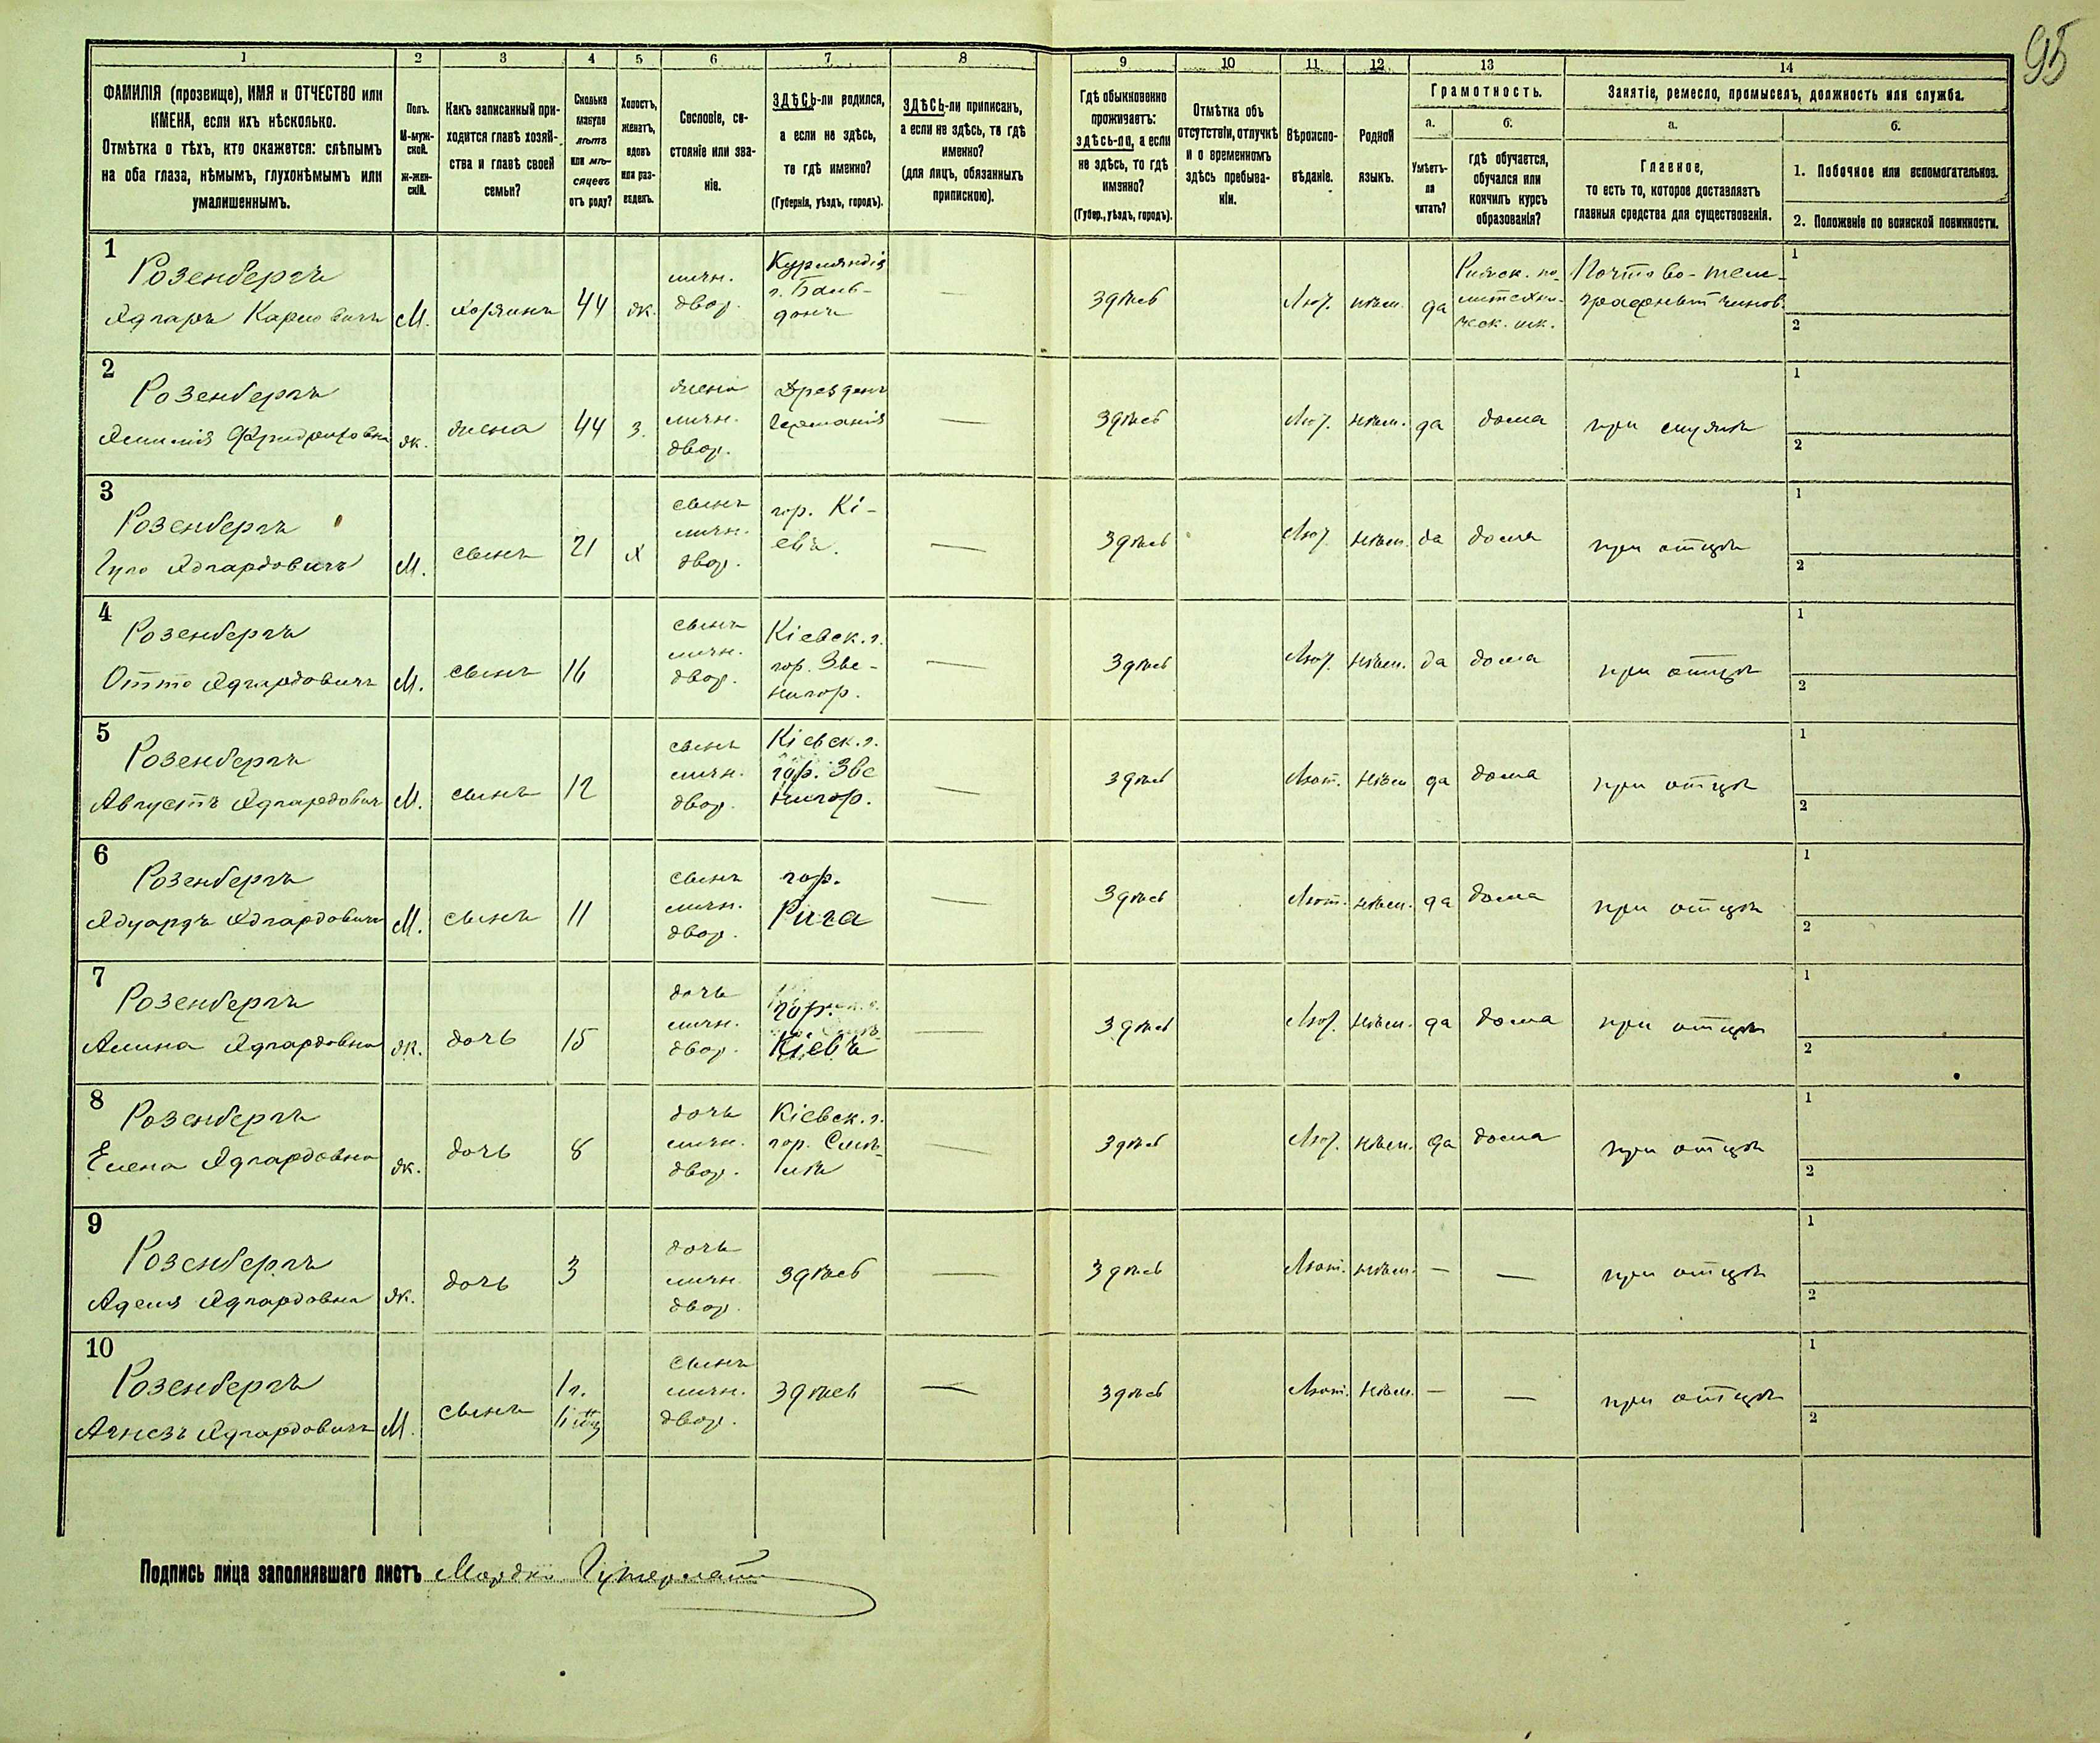 95
1 2 3 4 5 6 7 8 9 10 11 12 13 14
ФАМИЛІЯ (прозвище), ИМЯ и ОТЧЕСТВО или
ИМЕНА, если ихъ нѣсколько.
Отмѣтка о тѣхъ, кто окажется: слѣпымъ
на оба глаза, нѣмымъ, глухонѣмымъ или
умалишеннымъ.
Полъ.
М-муж-
ской.
Ж-жен-
скій.
Какъ записанный при-
ходится главѣ хозяй-
ства и главѣ своей
семьи?
Сколько
минуло
лѣтъ
или мѣ-
сяцевъ
отъ роду?
Холостъ,
женатъ,
вдовъ
или раз-
веденъ.
Сословіе, со-
стояніе или зва-
ніе.
ЗДѢСЬ-ли родился,
а если не здѣсь,
то гдѣ именно?
(Губернія, уѣздъ, городъ).
ЗДѢСЬ-ли приписанъ,
а если не здѣсь, то гдѣ
именно?
(для лицъ, обязанныхъ
припискою).
Гдѣ обыкновенно
проживаетъ:
здѣсь-ли, а если
не здѣсь, то гдѣ
именно?
(Губер., уѣздъ, городъ).
Отмѣтка объ
отсутствіи, отлучкѣ
и о временномъ
здѣсь пребыва-
ніи.
Вѣроиспо-
вѣданіе.
Родной
языкъ.
Грамотность.
а.
Умѣетъ-
ли
читать?
б.
гдѣ обучается,
обучался или
кончилъ курсъ
образованія?
Занятіе, ремесло, промыселъ, должность или служба.
а.
Главное,
то есть то, которое доставляетъ
главныя средства для существованія.
б.
1. Побочное или вспомогательное.
2. Положеніе по воинской повинности.
1
Розенбергъ
Эдгаръ Карловичъ
М. хозяинъ 44 ж.
личн.
двор.
Курляндія
г. Бальд-
донъ
—
здѣсь
Лют. нѣм. да
Рижск. по-
литехни-
ческ. шк.
Почтово-теле-
графный чинов.
1
2
2
Розенбергъ
Эмилія Фридриховна
ж. жена 44 з.
жена
личн.
двор.
Дрезденъ
Германія
—
здѣсь
Лют. нѣм. да дома при мужѣ
1
2
3
Розенбергъ
Гуго Эдгардовичъ
М. сынъ 21 х
сынъ
личн.
двор.
гор. Кі-
евъ.
—
здѣсь
Лют. нѣм. да дома при отцѣ
1
2
4
Розенбергъ
Отто Эдгардовичъ
М. сынъ 16
сынъ
личн.
двор.
Кіевск. г.
гор. Зве-
нигор.
—
здѣсь
Лют. нѣм. да дома при отцѣ
1
2
5
Розенбергъ
Августъ Эдгардович
М. сынъ 12
сынъ
личн.
двор.
Кіевск. г.
гор. Зве
нигор.
—
здѣсь
Лют. нѣм да дома при отцѣ
1
2
6
Розенбергъ
Эдуардъ Эдгардовичъ
М. сынъ 11
сынъ
личн.
двор.
гор.
Рига
—
здѣсь
Лют. нѣм. да дома при отцѣ
1
2
7
Розенбергъ
Алина Эдгардовна
ж. дочь 15
дочь
личн.
двор.
гор.
Кіевъ
—
здѣсь
Лют. нѣм. да дома при отцѣ
1
2
8
Розенбергъ
Елена Эдгардовна
ж. дочь 8
дочь
личн.
двор.
Кіевск. г.
гор. Смѣ-
ла
—
здѣсь
Лют. нѣм. да дома при отцѣ
1
2
9
Розенбергъ
Адель Эдгардовна
ж. дочь 3
дочь
личн.
двор.
здѣсь
—
здѣсь
Лют. нѣм. — — при отцѣ
1
2
10
Розенбергъ
Эдгардовичъ
М. сынъ
1 г.
сынъ
личн.
двор.
здѣсь
—
здѣсь
Лют. нѣм. — — при отцѣ
1
2
Подпись лица заполнявшаго листъ Мордко